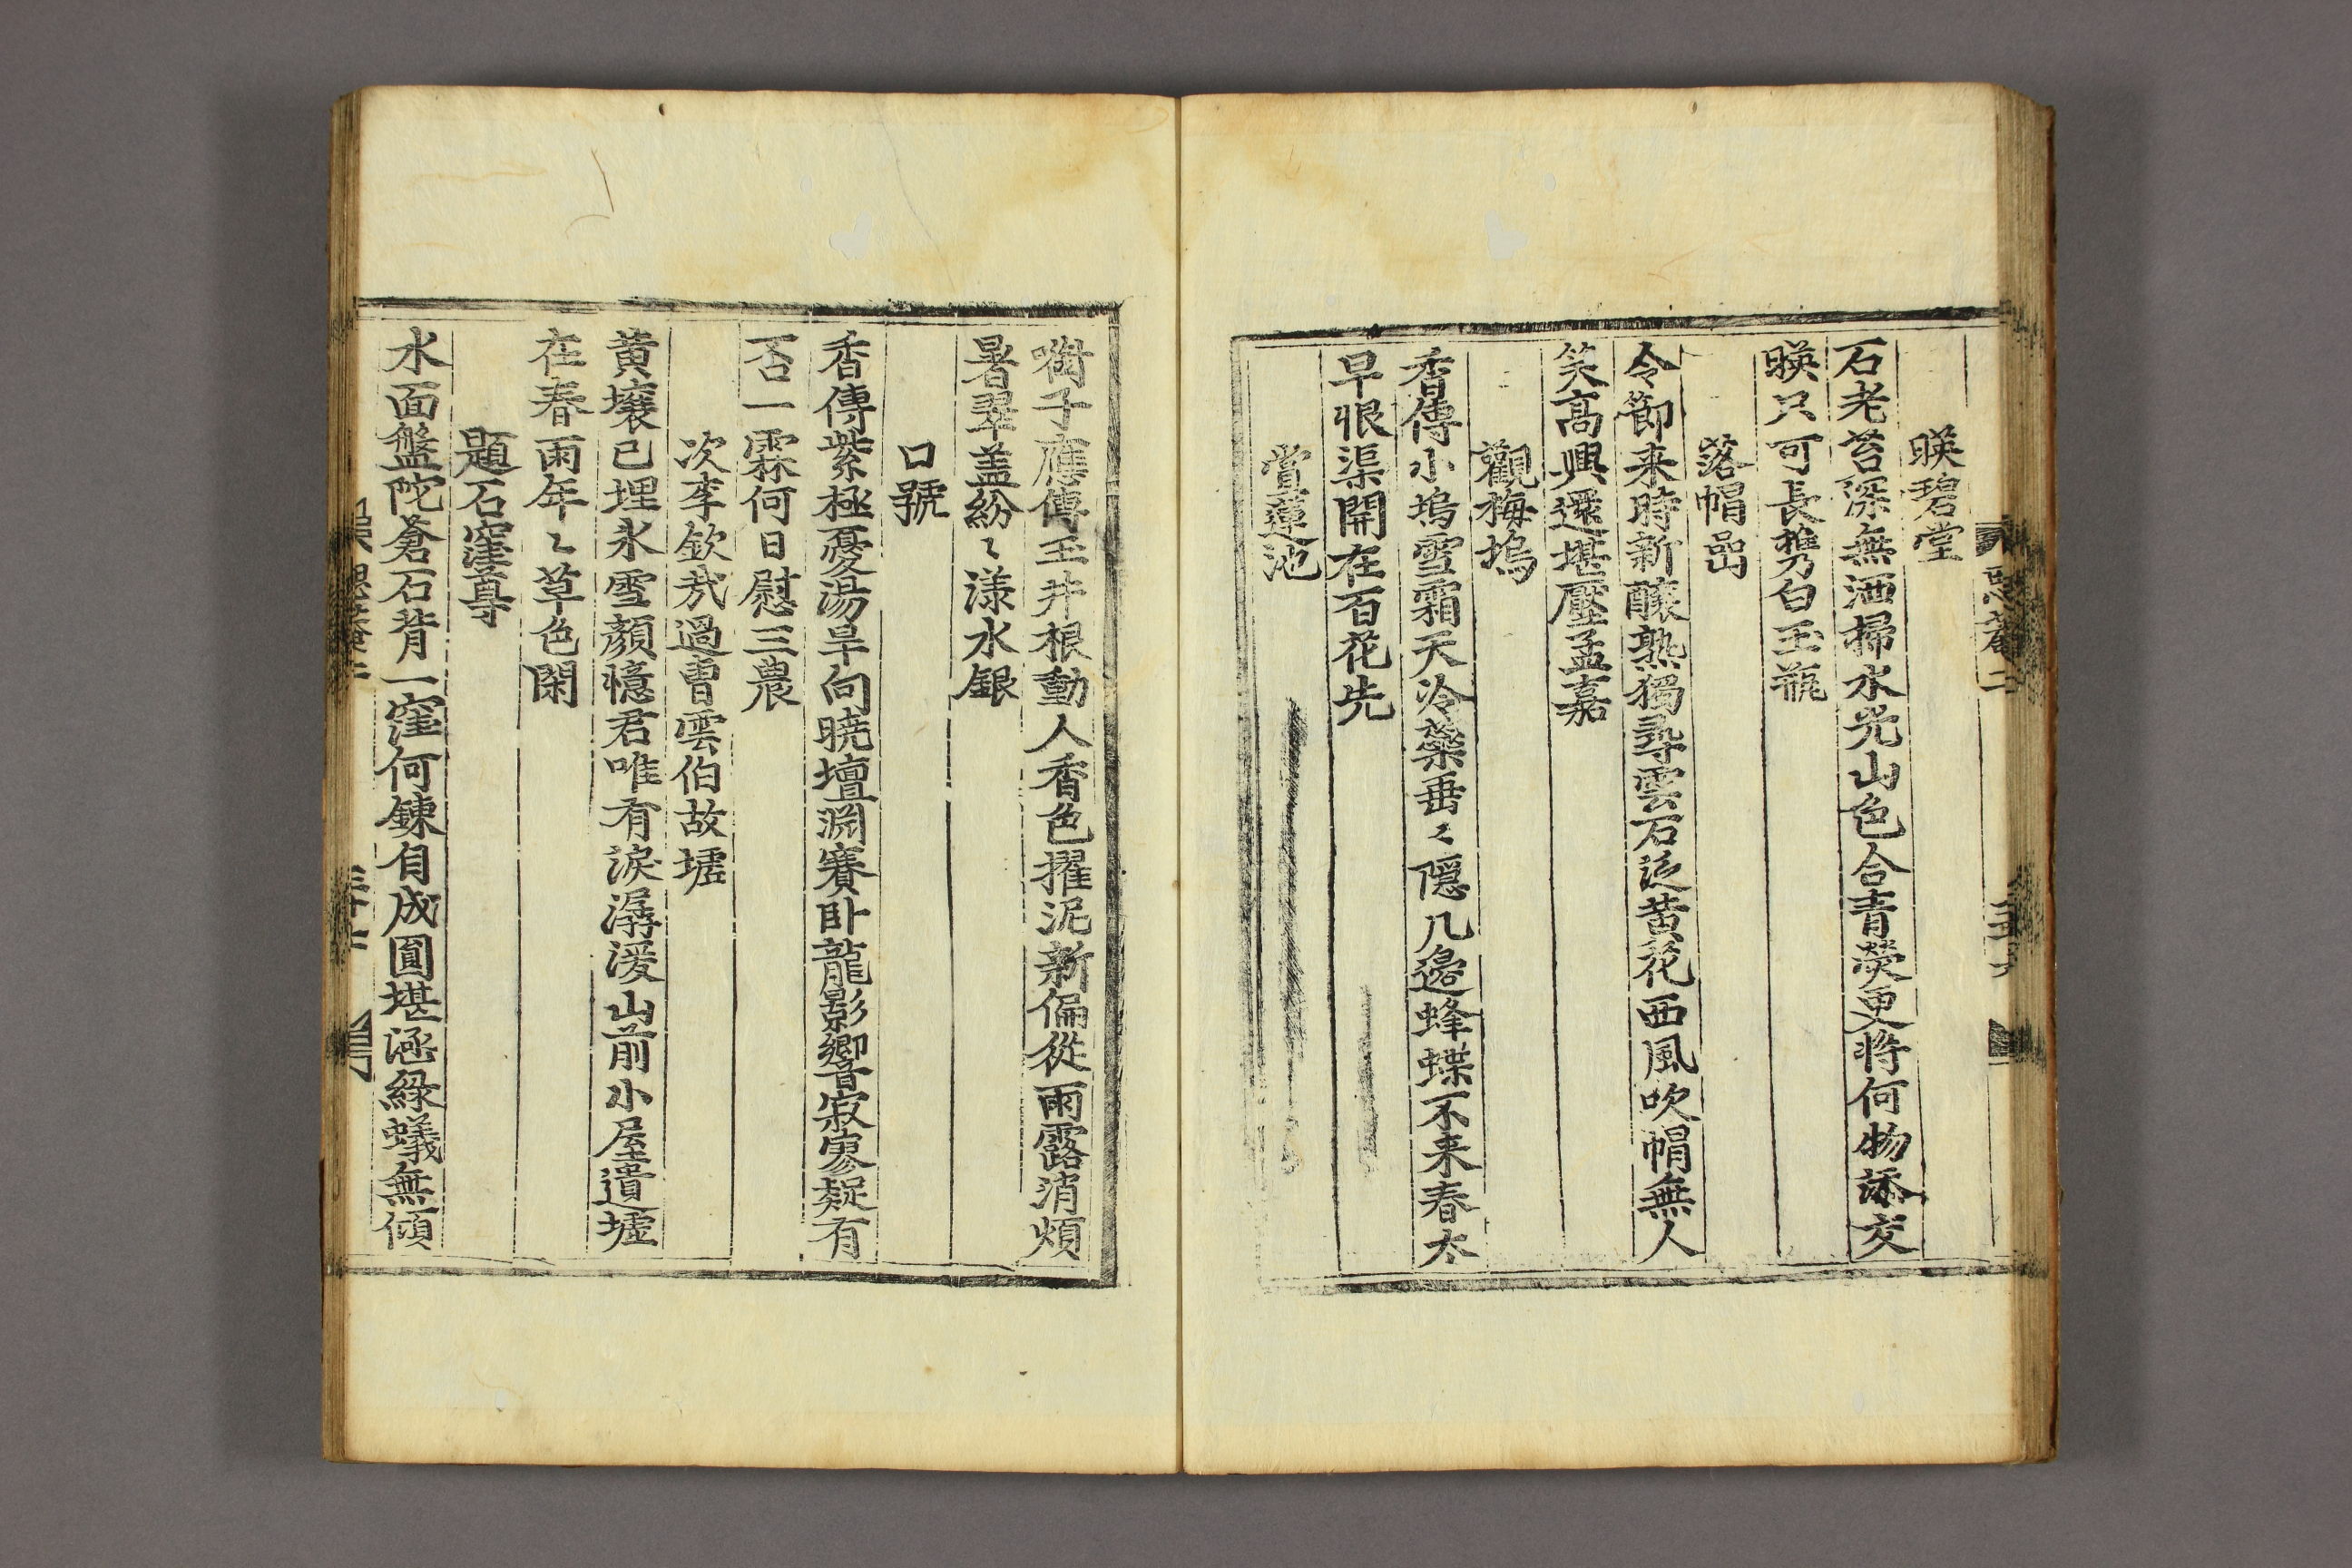 暎碧堂
石老苔深無洒掃水光山色合青熒更將何物添交
暎只可長携白玉瓶
落帽嵒
令節来時新釀熟獨尋雲石泛黄花西風吹帽無人
笑高興還堪壓孟嘉
觀梅塢
香傳小塢雪霜天冷蘂垂〻隠几邊蜂蝶不来春太
早恨渠開在百花先
賞蓮池
嘒子應傳玉井根動人香色擢泥新偏從雨露消煩
暑翠盖紛〻漾水銀
口號
香傳紫極憂湯旱向曉壇淵賽卧龍影響寂寥疑有
否一霖何日慰三農
次李欽㢤過曺雲伯故墟
黄壤已埋氷雪顔憶君唯有淚潺湲山前小屋遺墟
在春雨年〻草色閑
題石窪尊
水面盤陀蒼石背一窪何錬自成圓堪涵綠蟻無傾